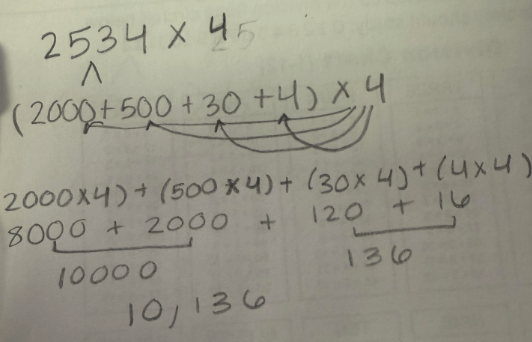 2534 × 4
(2000+500+30+4) × 4
2000×4)+(500×4)+(30×4)+(4×4)
8000 + 2000 + 120 + 16
10000 136
10,136